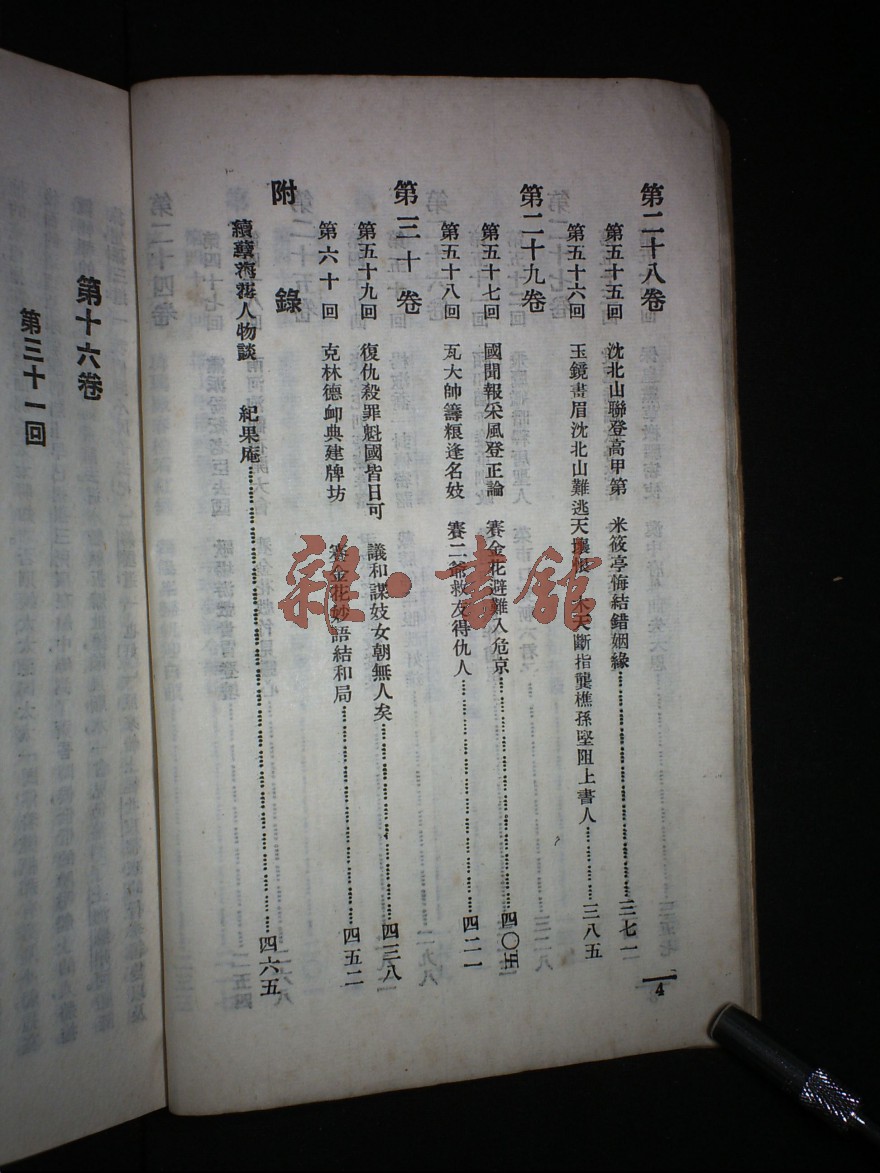 第二十八卷
第五十五回 沈北山聯登高甲第 米筱亭悔結錯姻緣 三七一
第五十六回 玉鏡畫眉沈北山難逃天壤恨 木天斷指龔樵孫堅阻上書人 三八五
第二十九卷
第五十七回 國聞報采風登正論 賽金花避難入危京 四〇五
第五十八回 瓦大帥籌粮逢名妓 賽二爺救友得仇人 四二一
第三十卷
第五十九回 復仇殺罪魁國皆曰可 議和謀妓女朝無人矣 四三八
第六十回 克林德卹典建牌坊 賽金花妙語結和局 四五二
附錄
續孽海花人物談 紀果庵 四六五
4
第十六卷
第三十一回
雜·書館